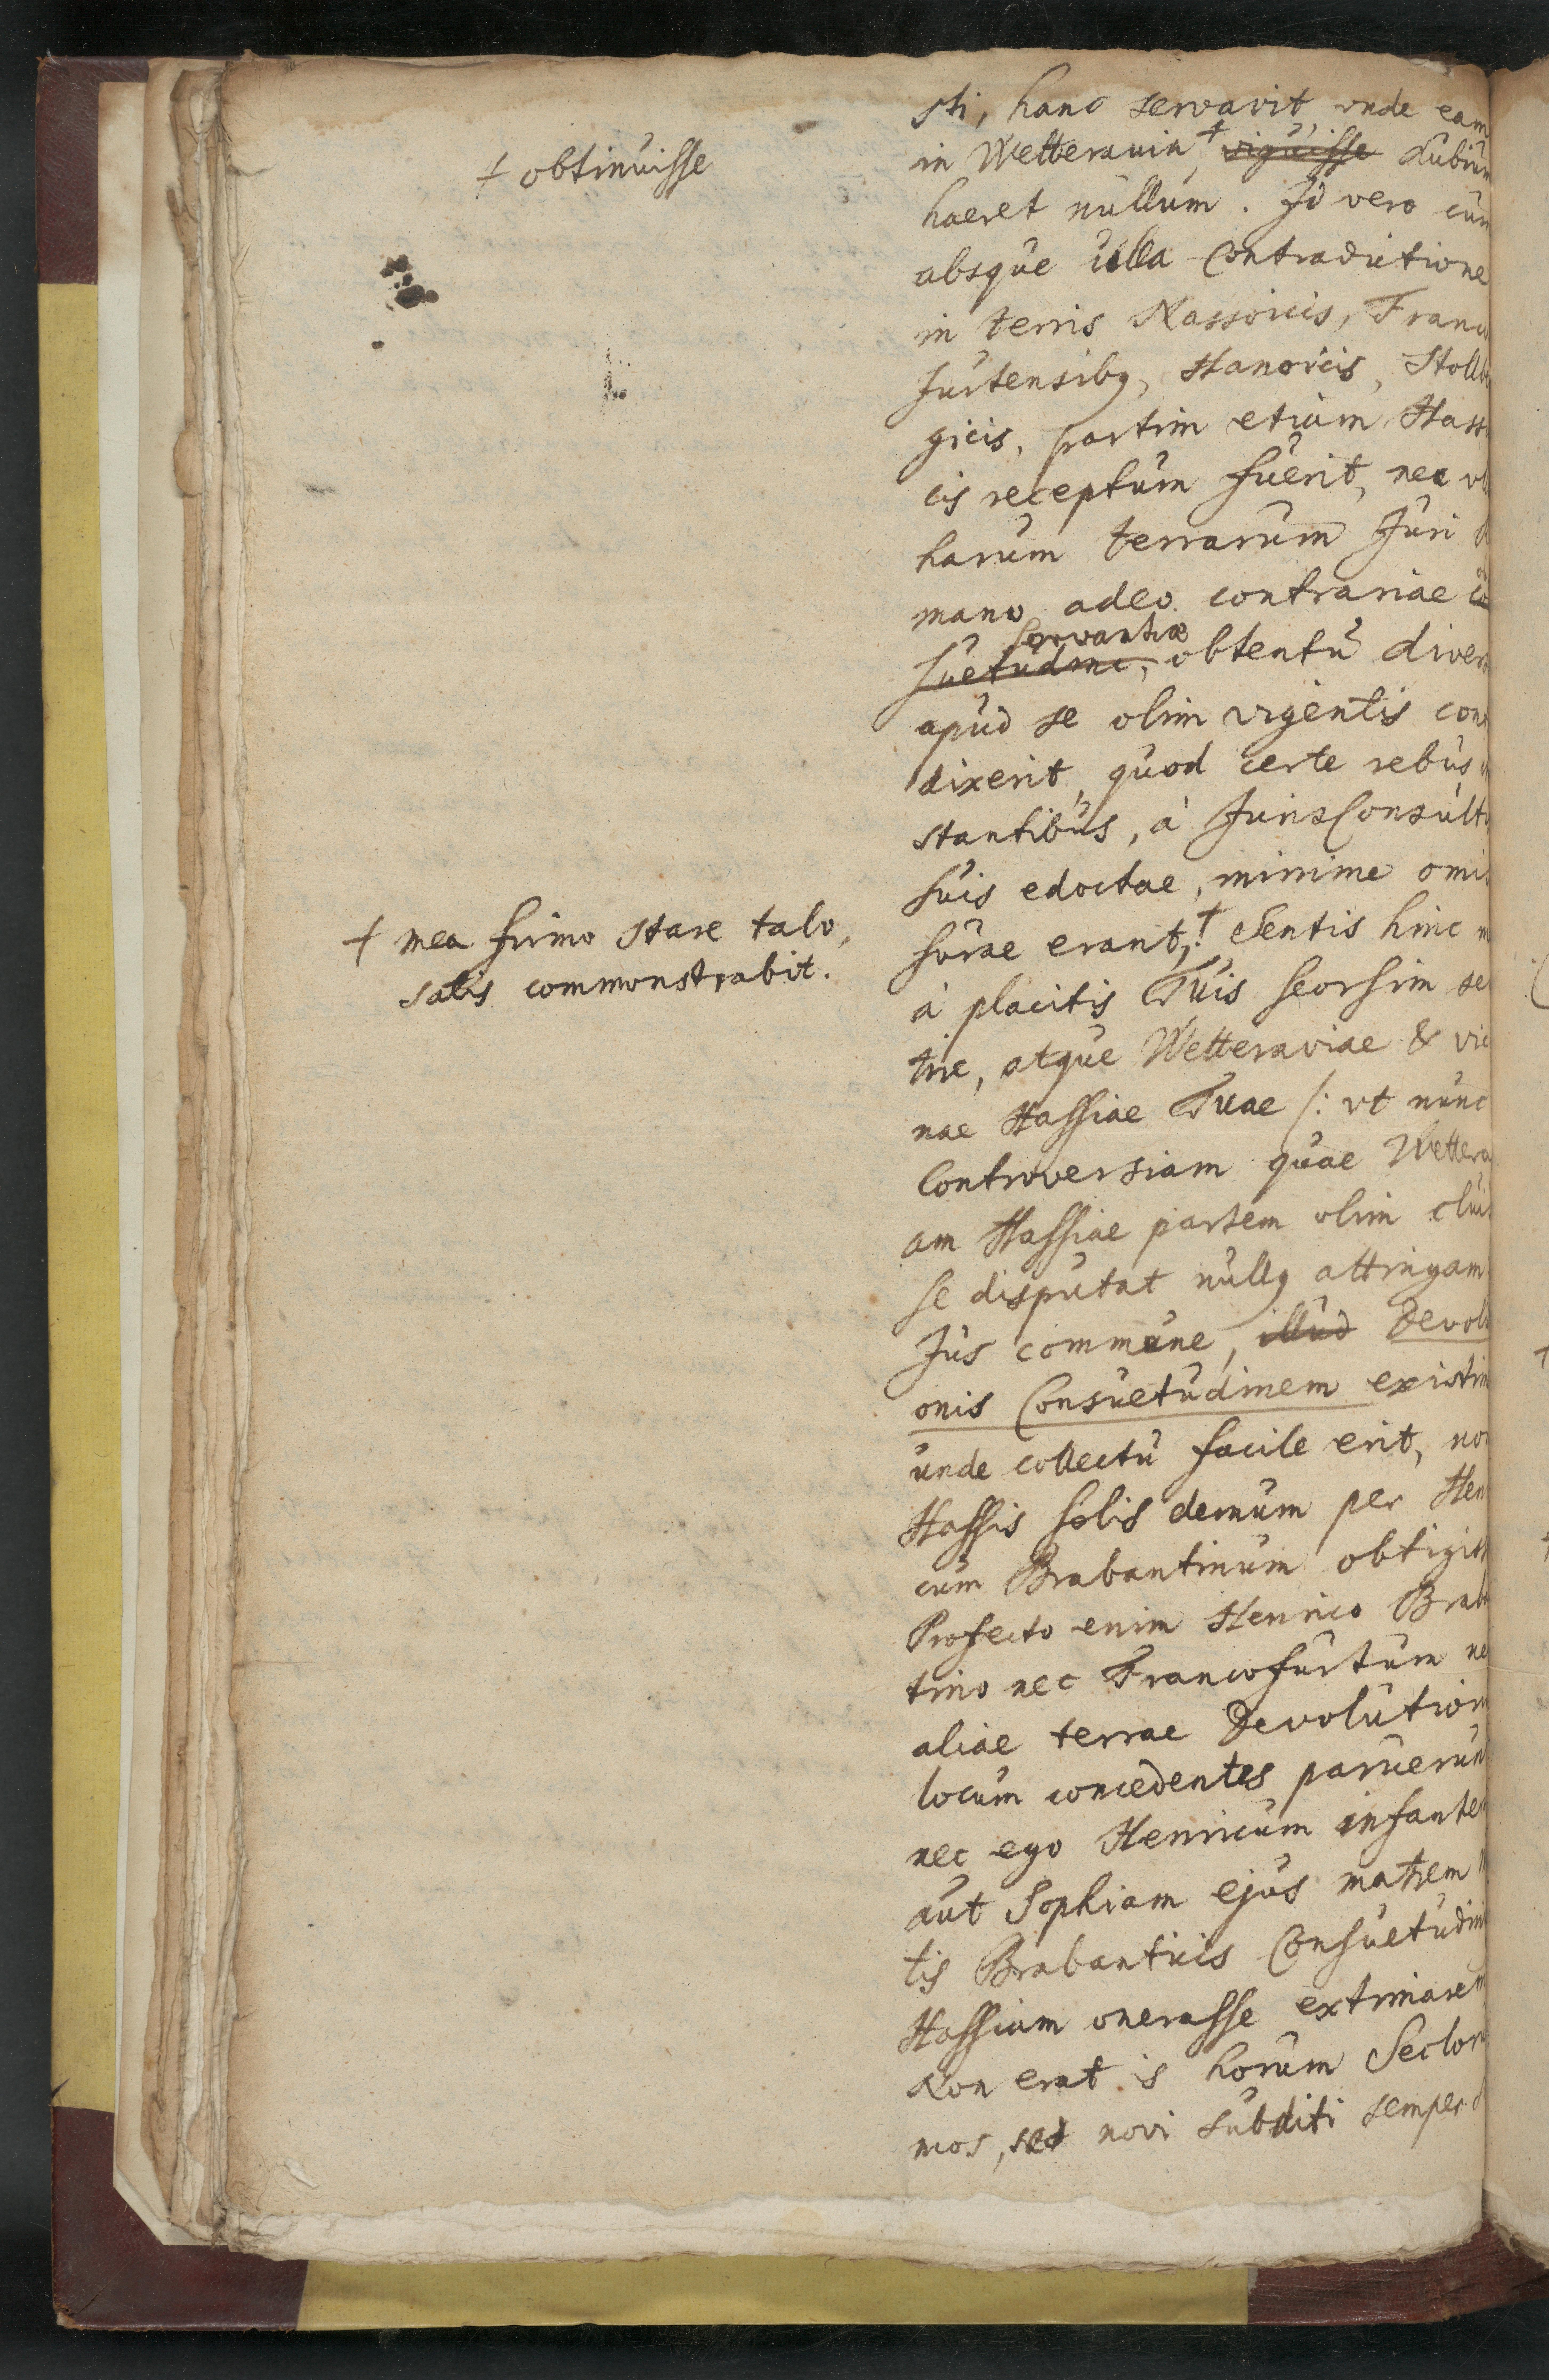 sti, hanc servavit, vnde eam
in Wetteravia † viguisse dubium
† obtinuisse
haeret nullum. Id vero cum
absque ulla Contradictione
in terris Nassoicis, Franco
furtensibq, Hanoicis, Stollb
gicis, partim etiam Hass
cis receptum fuerit, nec
harum terrarum Juri
mano adeo contrariae co
servantiae
suetudine, obtentu divers
apud se olim vigentis con
dixerit, quod certe rebus
stantibus, à JurisConsult
suis edoctae, minime omis
surae erant, † Sentis hinc m
† mea firmo stare talo,
satis commonstrabit.
à placitis Tuis seorsim se
tire, atque Wetteraviae & vic
nae Hassiae Tuae /: vt nunc
Controversiam quae Wettera
am Hassiae partem olim clui
se disputat nullq attingam
Jus commune, illud Devolu
onis Consuetudinem existim
unde collectu facile erit, non
Hassis solis demum per Hen
cum Brabantinum obtigiss
Profecto enim Henrico Brab
tino nec Francofurtum ne
aliae terrae Devolution
locum concedentes paruerun
nec ego Henricum infantem
aut Sophiam ejus matrem
tis Brabanticis Consuetudini
Hassiam onerasse extimarem
Non erat is horum Seclor
mos, sed novi subditi semper